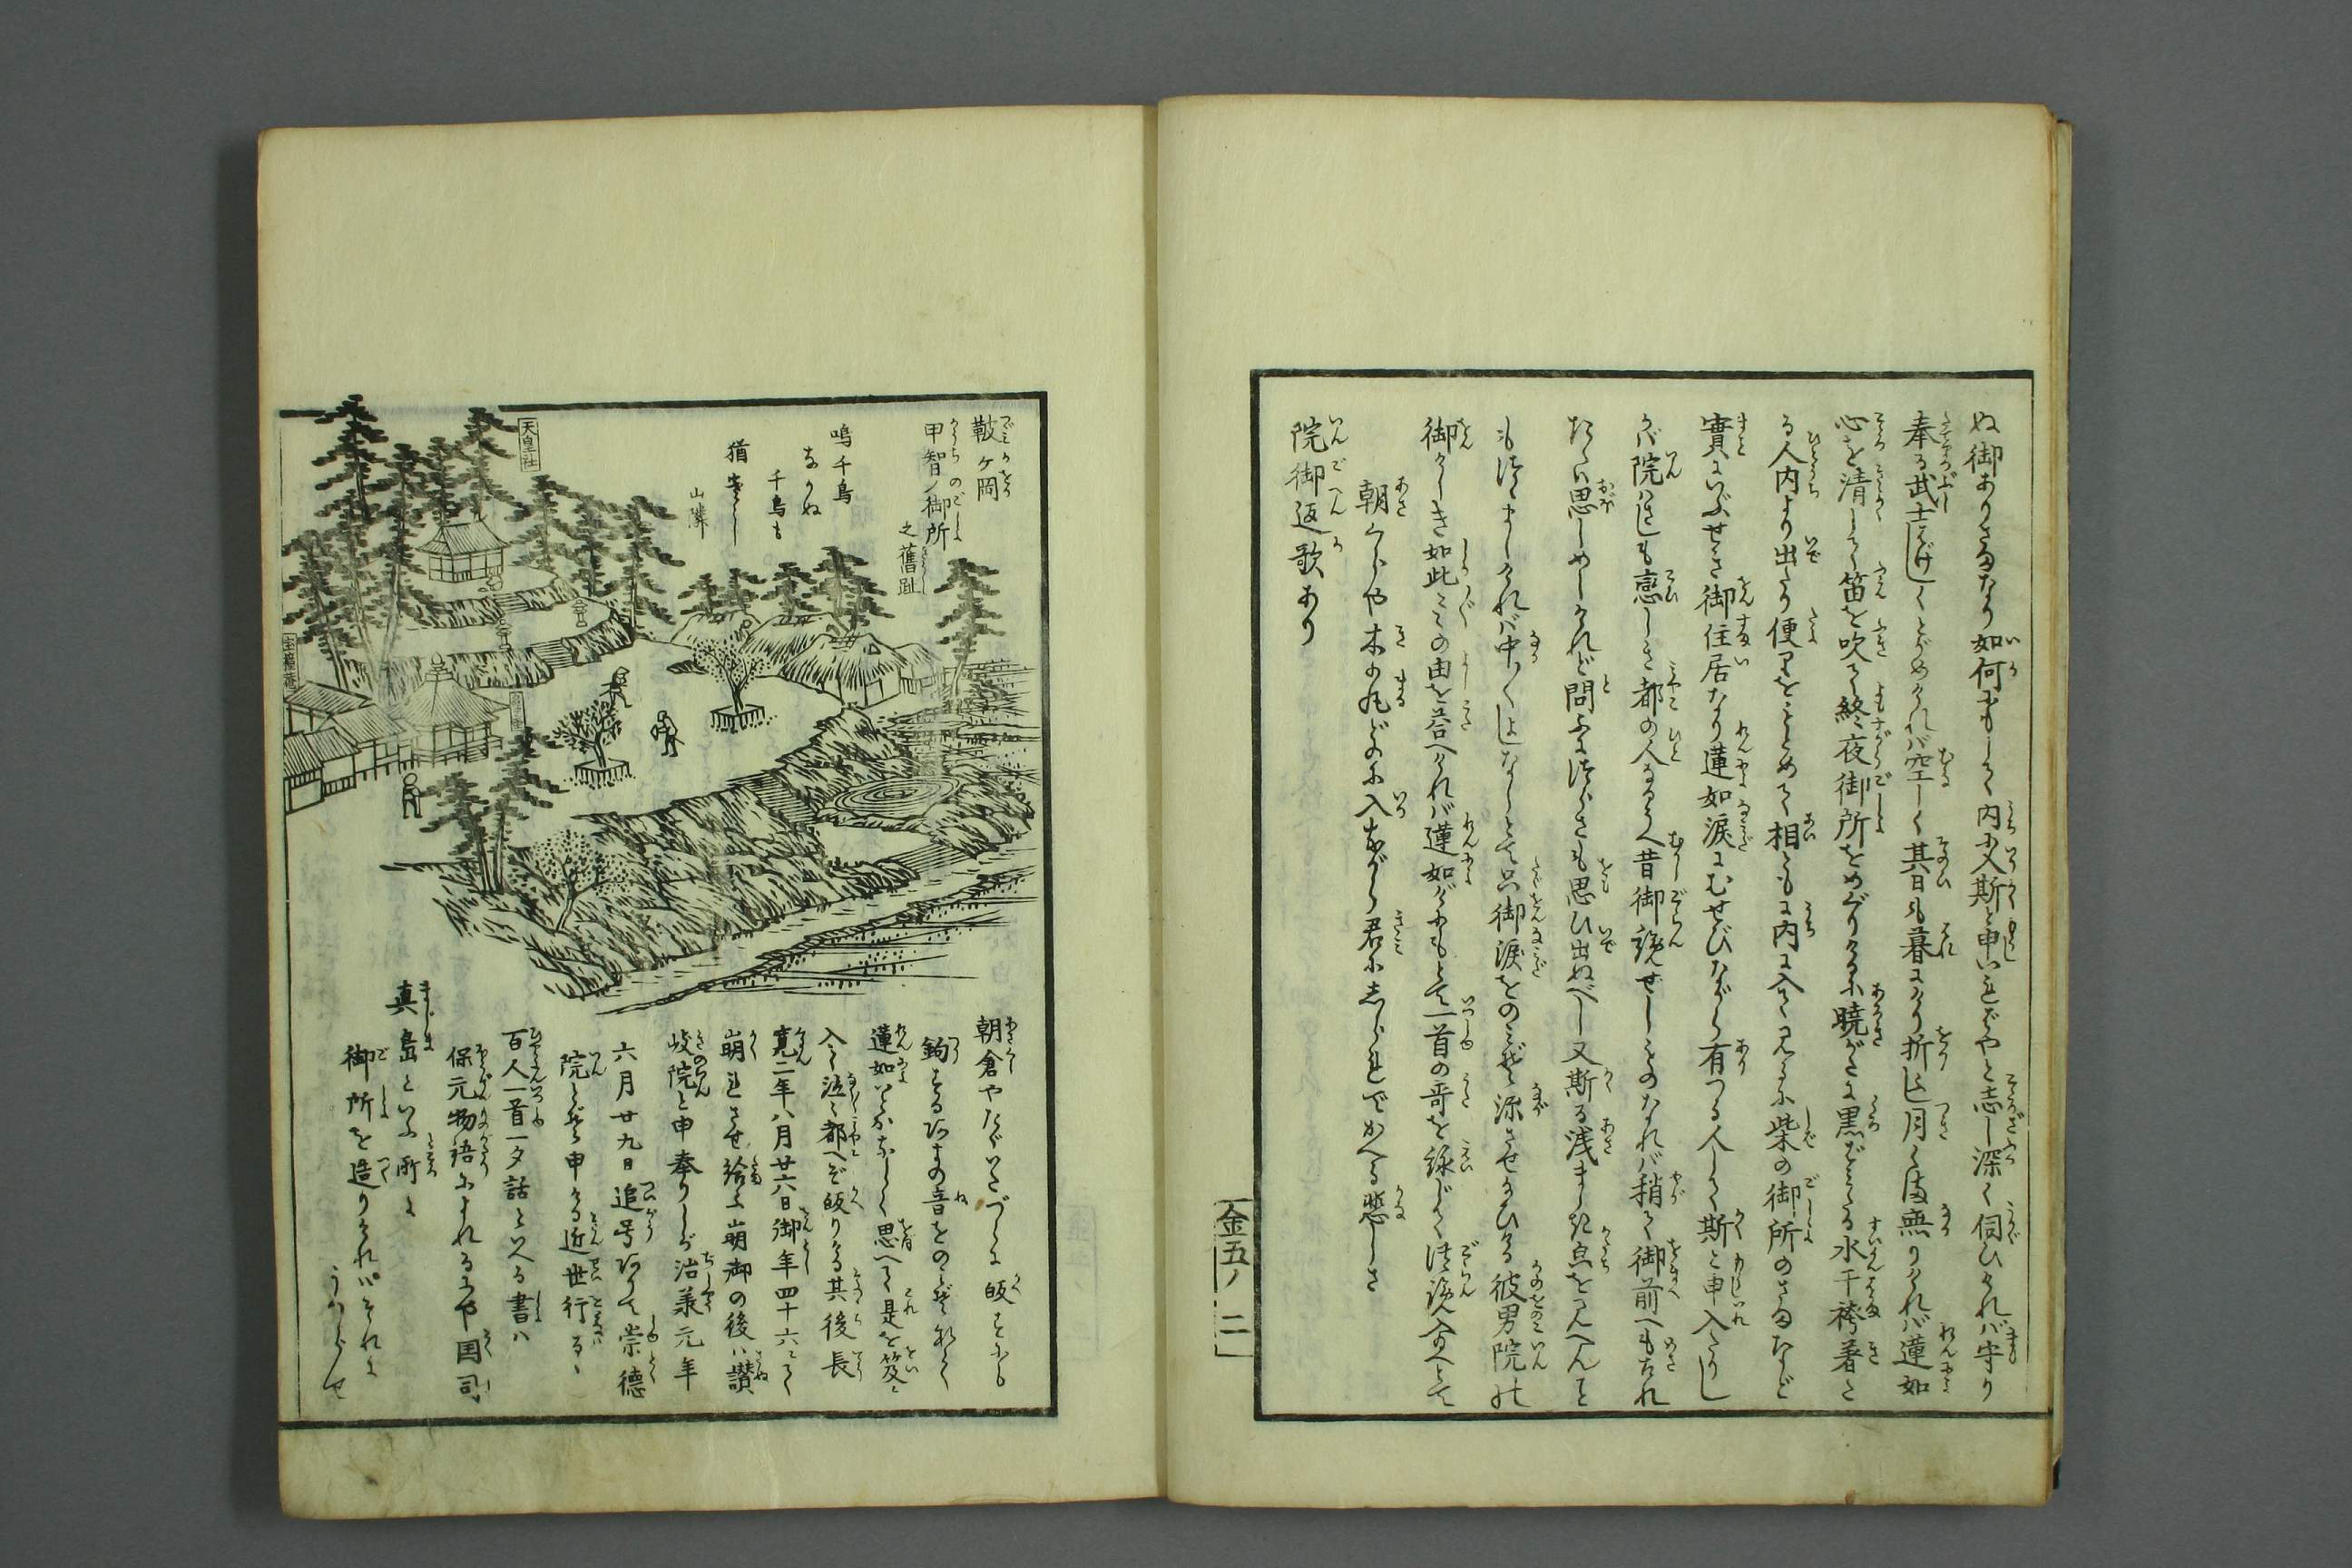 ぬ御ありさまなり如何にもして内に斯と申いればやと志し深く伺ひけれバ守り
奉る武士はげしくとがめけれバ空しく其日も暮にけり折しも月くま無りけれバ蓮如
心を清して笛を吹て終夜御所をめぐりけるに暁がたに黒ばみたる水干袴着た
る人内より出たり便りをもとめて相ともに内に入て見るに柴の御所のさまなど
實にいぶせき御住居なり蓮如涙にむせびながら有つる人して斯と申入たりし
かバ院ハさしも恋しき都の人なるうへ昔御覧せしものなれバ稍て御前へもめされ
たく思しめしけれど問ふにつらさも思ひ出ぬべし又斯る浅ましき貌をみへんも
も御涙をのミぞ流させ給ひける彼男院の
御けしき如此々々の由を答へけれバ蓮如がなくもとて一首の哥を詠じて御覧に入給へとて
朝くらや木の丸どのに入ながら君にしられでかへる悲しさ
院御返歌あり
金五ノ 二
鞍ケ岡
甲智ノ御所
之舊趾
鳴千鳥
なかね
千鳥も
猶
山隣
天皇社
朝倉やたゞいたづらに皈すにも
釣するあまの音をのミぞなく
蓮如いとかなしく思へて是を笈に
入て泣々都へぞ皈りける其後長
寛二年八月廿六日御年四十六にて
崩れさせ給ふ崩御の後ハ讃
岐院と申奉りしが治承元年
六月廿九日追号ありて崇徳
院とぞ申ける近世行るゝ
百人一首一夕話といへる書ハ
保元物語によれるにや国司
真島といふ所に
御所を造りけれバそれに
うつらせ